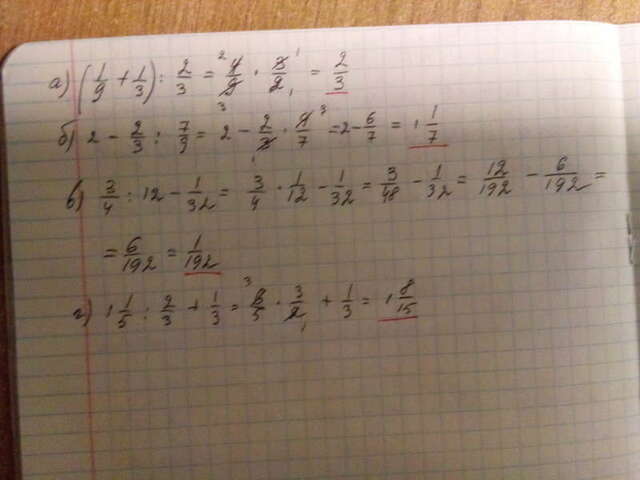 а) (1/9 + 1/3) : 2/3 = 4/9 · 3/2 = 2/3
б) 2 - 2/3 : 7/9 = 2 - 2/3 · 9/7 = 2 - 6/7 = 1 1/7
в) 3/4 : 12 - 1/32 = 3/4 · 1/12 - 1/32 = 3/48 - 1/32 = 12/192 - 6/192 =
= 6/192 = 1/192
г) 1 1/5 : 2/3 + 1/3 = 6/5 · 3/2 + 1/3 = 1 8/15